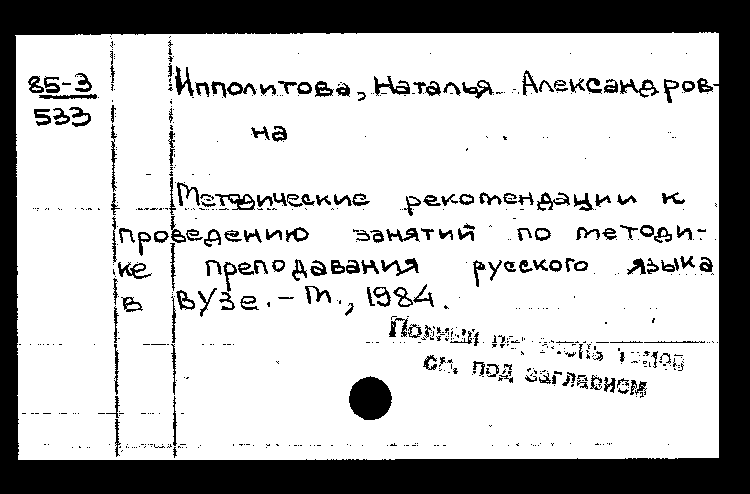 85-3
533
Ипполитова, Наталья Александров-
на
Методические рекомендации к
проведению занятий по методи-
ке преподавания русского языка
в ВУЗе. – М., 1984.
Полный перечень томов
см. под заглавием